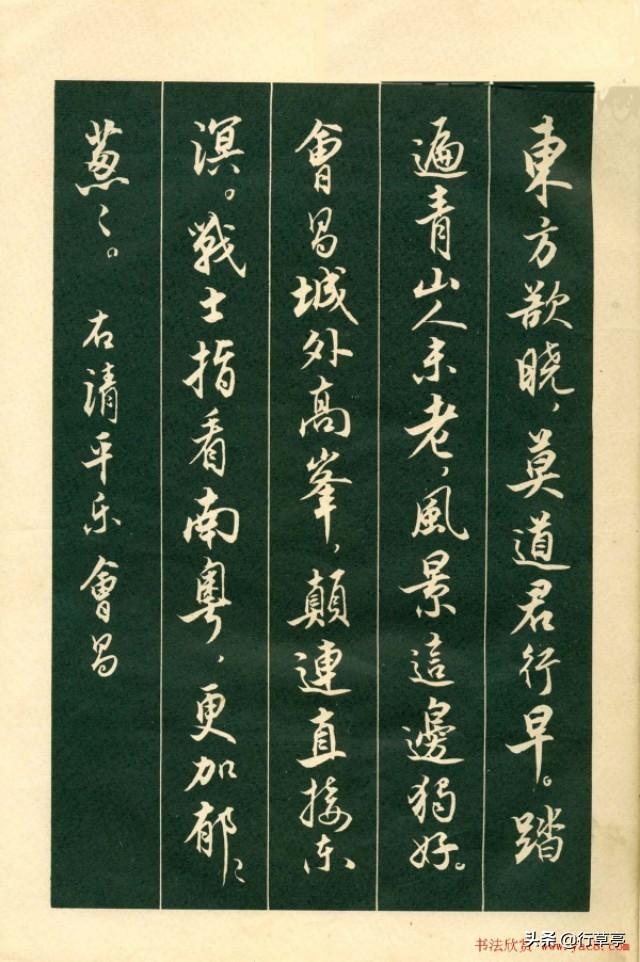 東方欲曉，莫道君行早。踏
遍青山人未老，風景這邊獨好。
會昌城外高峯，顛連直接东
溟。戰士指看南粵，更加郁〻
葱〻。 右清平乐會昌
书法欣赏 www.yac8.com
头条 @行草亭